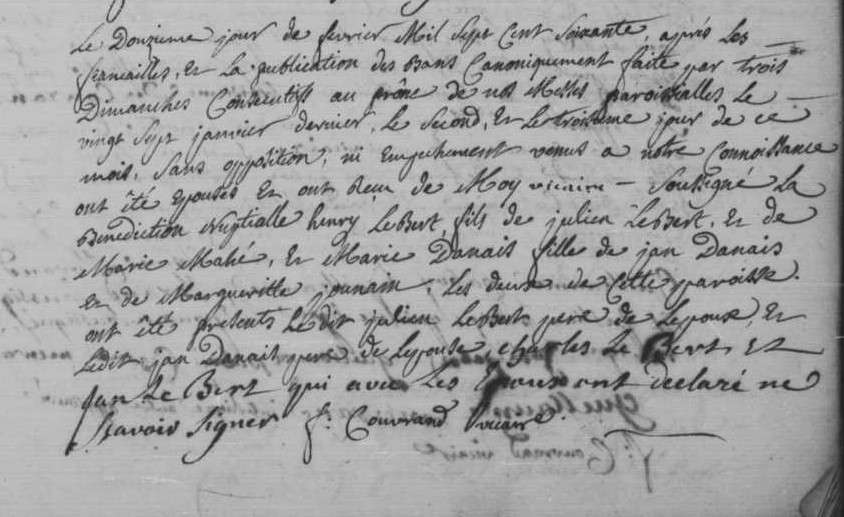 Le Douzieme jour de fevrier Mil Sept Cent Soixante, aprés Les
fiancailles, Et La publication des Bans Canoniquement faite par trois
Dimanches Consecutifs au prône de nos Messes paroissialles Le
vingt Sept janvier dernier, Le Second, Et Le troisieme jour de ce
mois, Sans opposition, ni Empechement venus a notre Connoissance
ont été Epousés Et ont Reçu de Moy vicaire – Soussigné La
Benediction Nuptialle henry LeBert, fils de julien LeBert, Et de
Marie Mahé, Et Marie Danais fille de jan Danais
Et de Margueritte jounain, Les deux de Cette paroisse.
ont été presents Ledit julien LeBert pere de Lepoux, Et
Ledit jan Danais pere de Lepouse, charles Le Bert Et
Jan Le Bert qui avec Les Epoux ont declaré ne
Scavoir Signer f. Couvrand vicaire